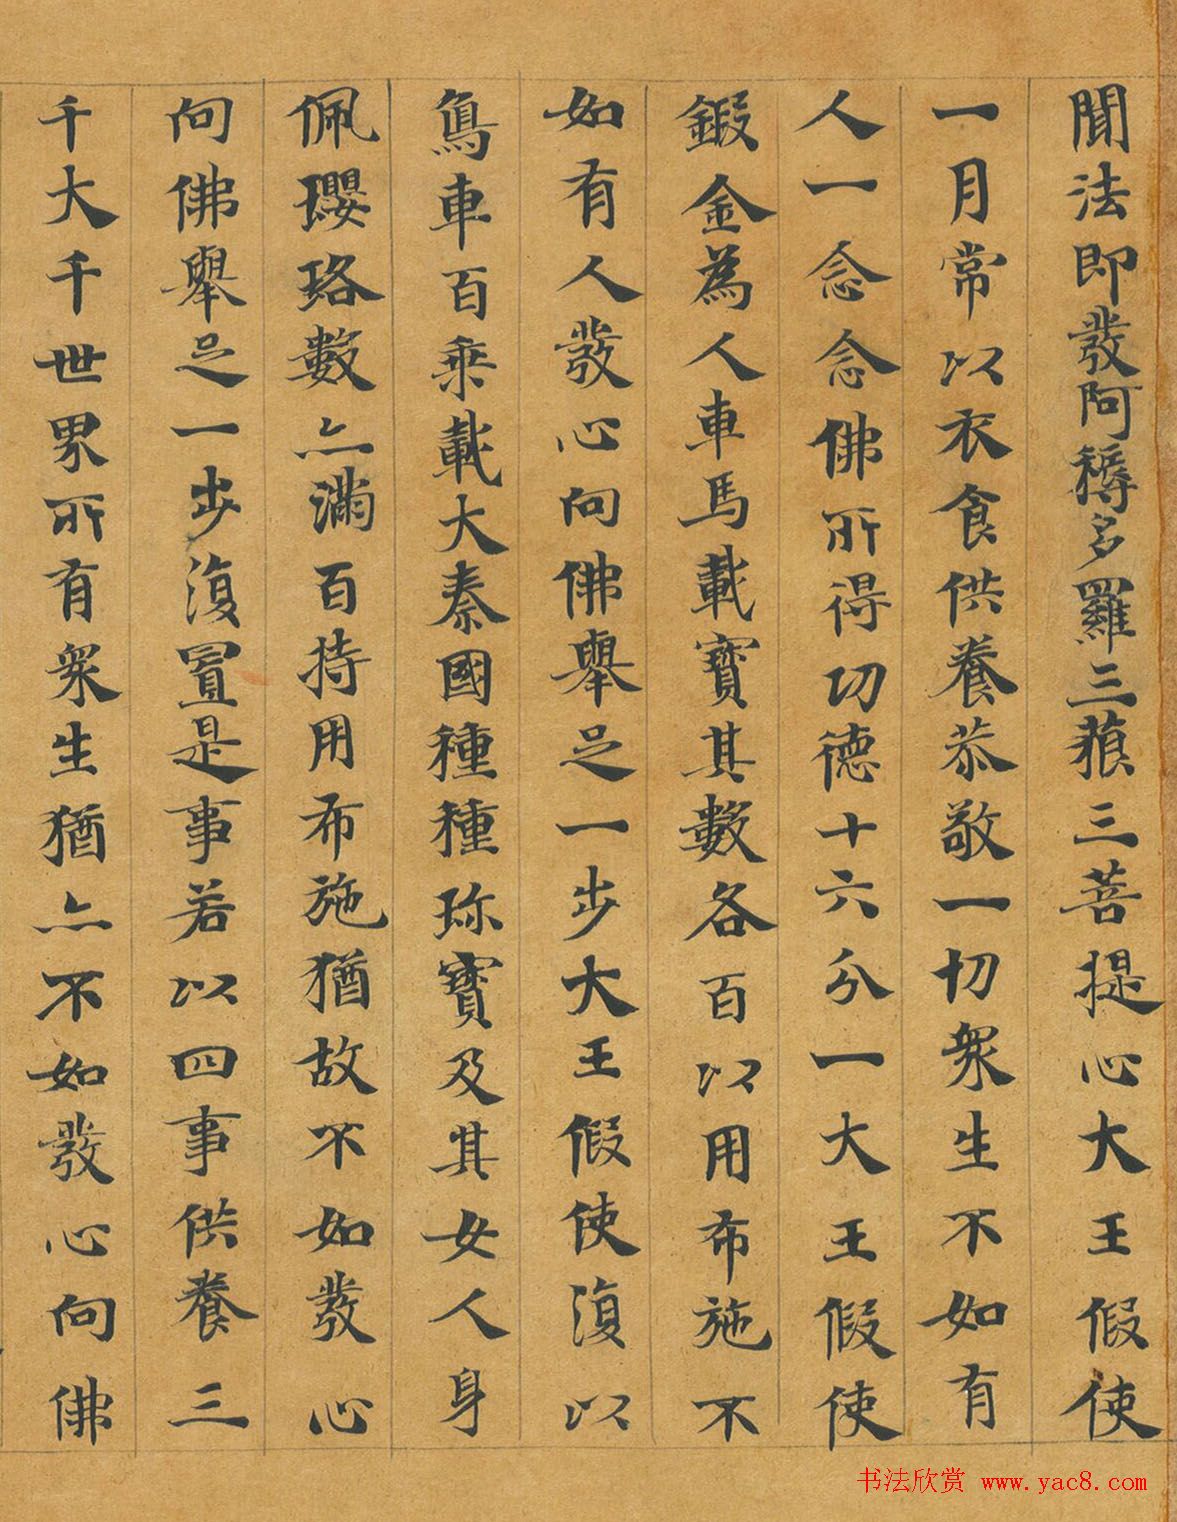 聞法即發阿耨多羅三藐三菩提心大王假使
一月常以衣食供養恭敬一切衆生不如有
人一念念佛所得功德十六分一大王假使
鍛金為人車馬載寶其數各百以用布施不
如有人發心向佛舉足一步大王假使復以
烏車百乘載大秦國種種珎寶及其女人身
佩瓔珞數亦滿百持用布施猶故不如發心
向佛舉足一步復置是事若以四事供養三
千大千世界所有衆生猶亦不如發心向佛
书法欣赏 www.yac8.com